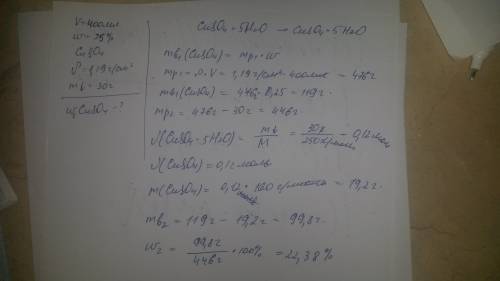 V=400мл
w=25%
CuSO₄
ρ=1,19г/см³
mb=30г
w₂CuSO₄-?
CuSO₄+5H₂O → CuSO₄*5H₂O
mb₁(CuSO₄) = mp₁*w
mp₁=ρ*V=1,19г/см³*400мл=476г
mb₁(CuSO₄)= 476*0,25=119г
mp₂=476г-30г=446г
(CuSO₄*5H₂O) = mb/M = 30г/250г/моль = 0,12моль
(CuSO₄)=0,12моль
m(CuSO₄)= 0,12моль*160г/моль = 19,2г
mb₂=119г-19,2г=99,8г
w₂= 99,8г/446г*100%=22,38%